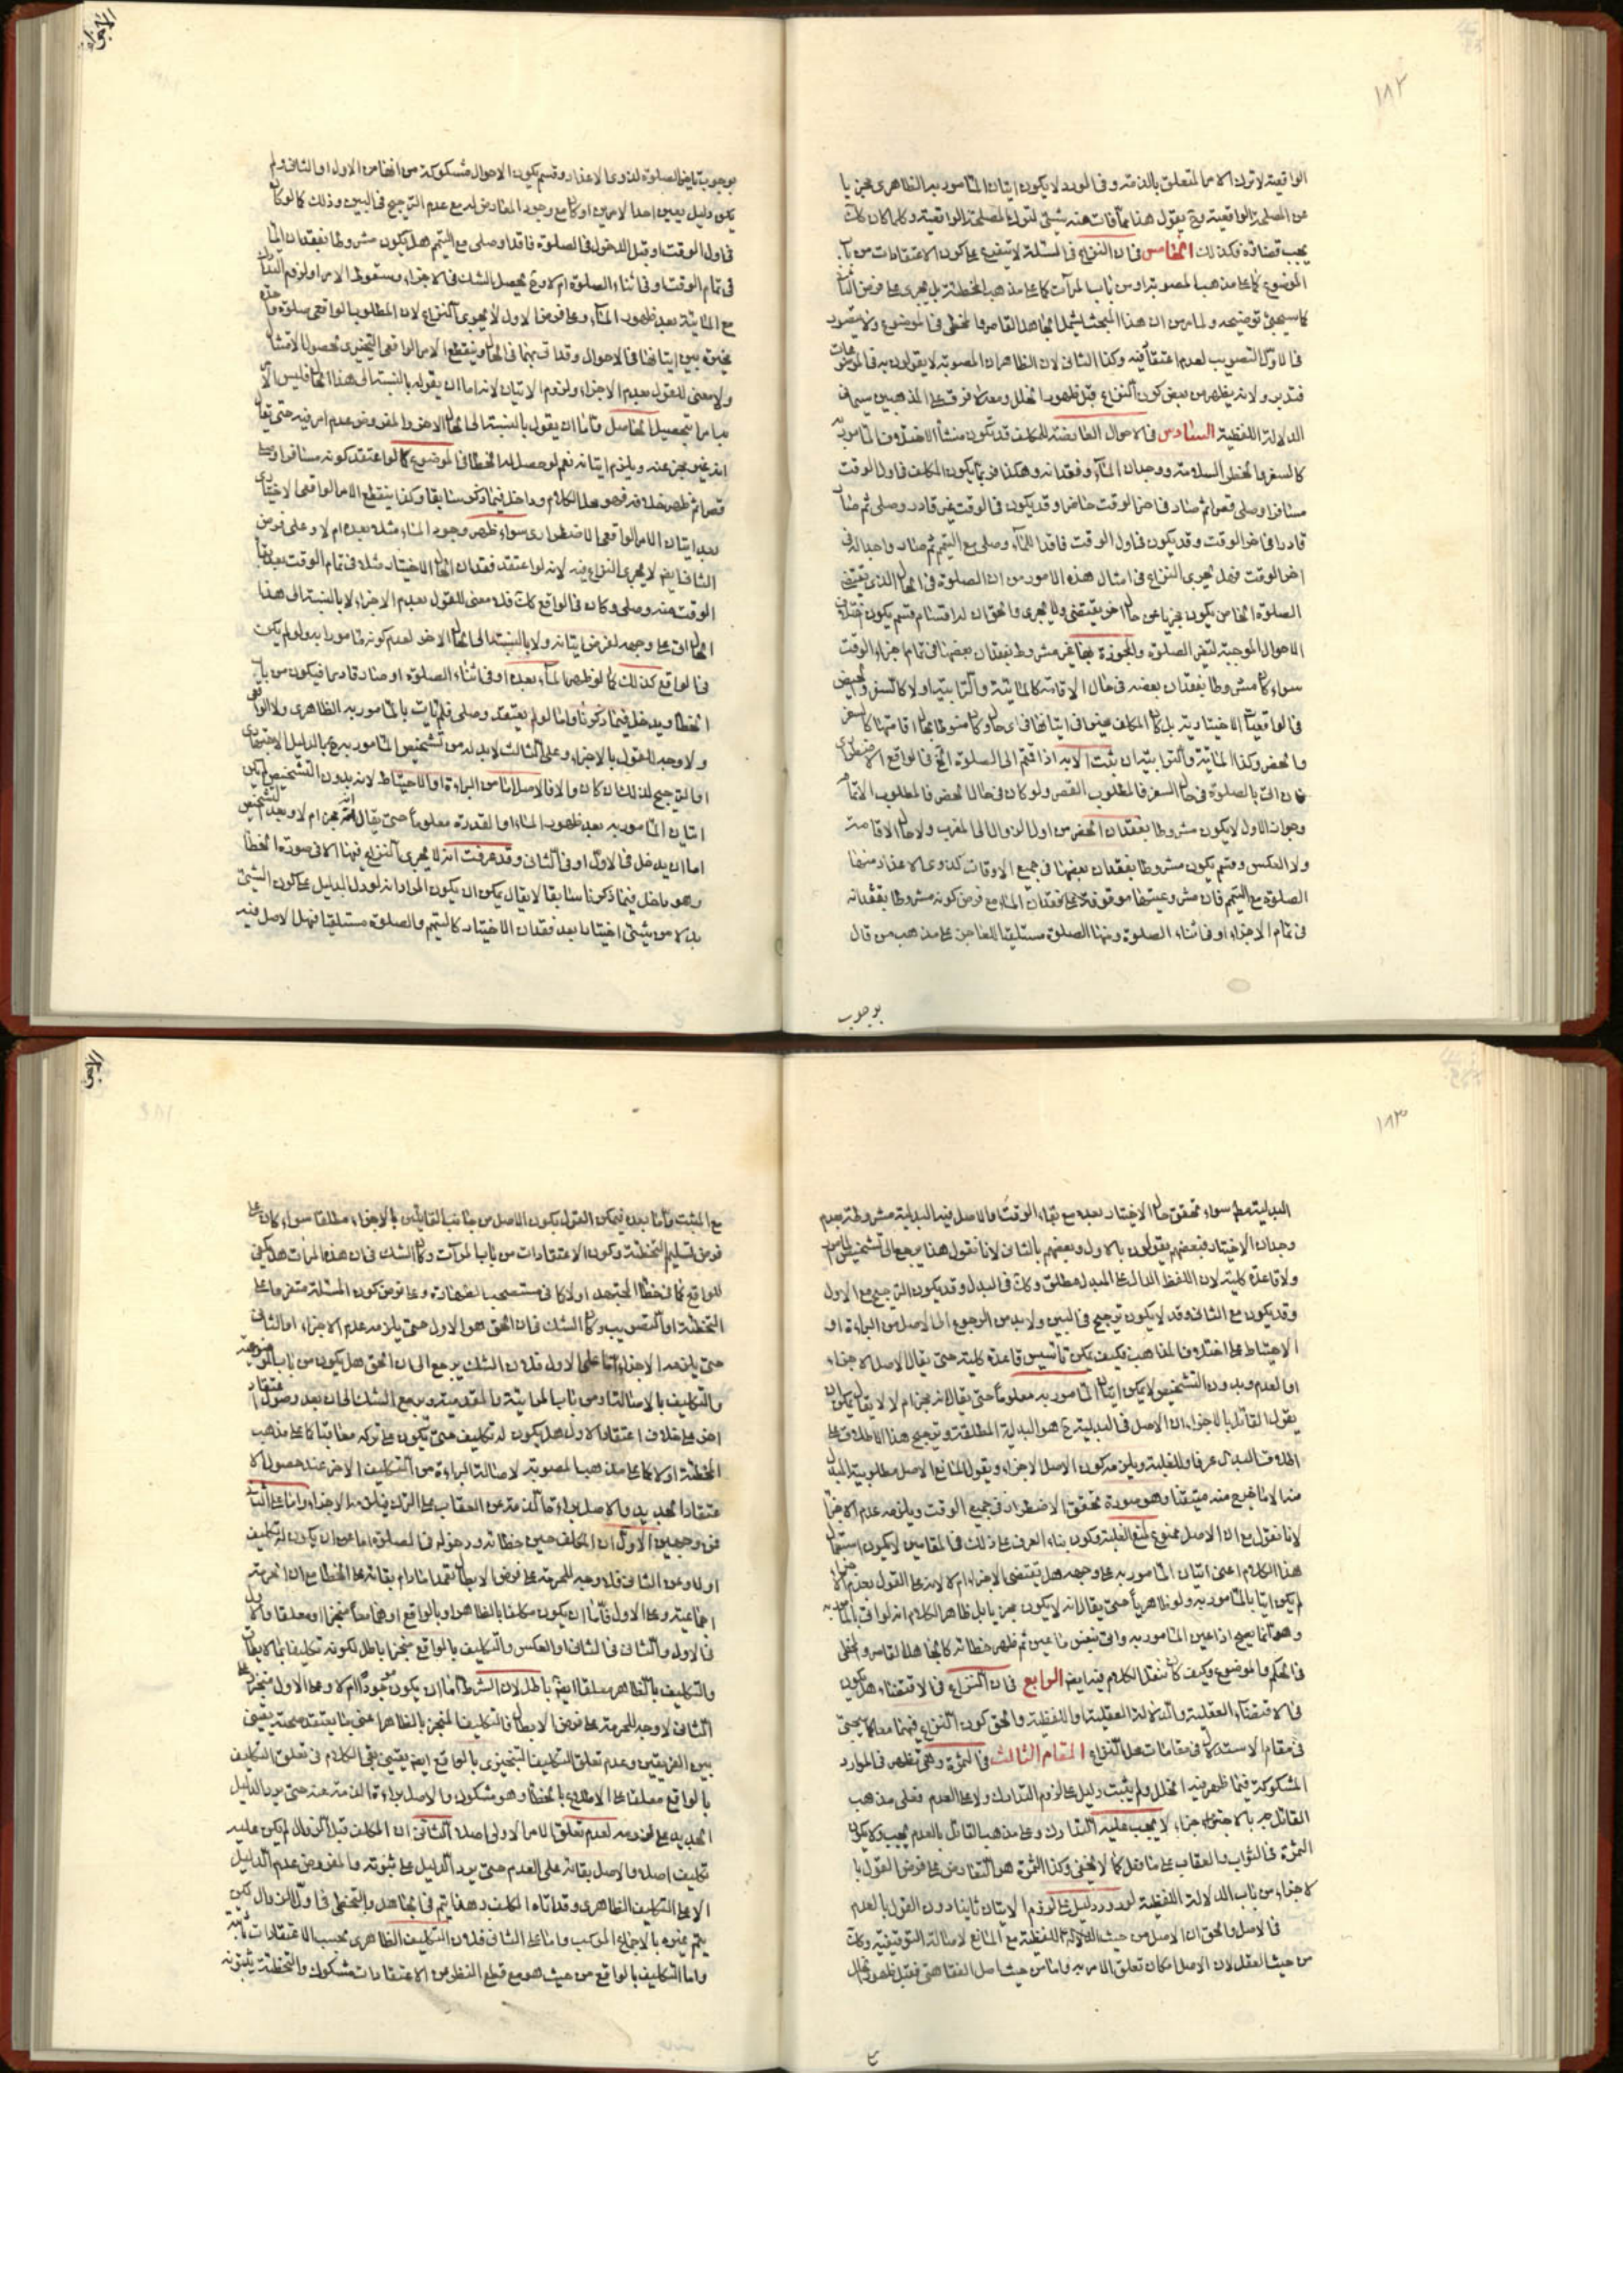 ١٨٢
الواقعية لا ترك الامر المتعلق بالذمة وفى المورد لا يكون اتيان المأمور به الظاهرى مجزيا
عن المصلحة الواقعية وح يقول هذا مما فات منه شيئ لترك المصلحة الواقعية وكلما كان كك
يجب قضاؤه فكذلك الخامس فى ان النزاع فى المسئلة لا يتفرع على كون الاعتقادات من باب
الموضوع كما على مذهب المصوبة او من باب المرآت كما على مذهب المخطئة بل يجرى على فرض الثانى
كما سيجئ توضيحه ولما مر من ان هذا المبحث يشمل الجاهل القاصر والمخطى فى الموضوع ولا يتصور
فى الاول التصويب لعدم اعتقاد فيه وكذا الثانى لان الظاهر ان المصوبة لا يقولون به فى الموضوعات
فتدبر ولانه يظهر من بعض كون النزاع قبل ظهور الخلل ومعه لا فرق على المذهبين سيما فى
الدلالة اللفظية السادس فى الاحوال العارضة للمكلف قد تكون منشأ الاختلاف المأمور به
كالسفر والحضر والسلامة ووجدان الماء وفقدانه وهكذا فربما يكون المكلف فى اول الوقت
مسافرا وصلى قصرا ثم صار فى اخر الوقت حاضرا وقد يكون فى الوقت غير قادر وصلى ثم صار
قادرا فى اخر الوقت وقد يكون فى اول الوقت فاقدا للماء وصلى مع التيمم ثم صار واجدا له فى
اخر الوقت فهل يجرى النزاع فى امثال هذه الامور من ان الصلوة فى الحال الذى يقتضى
الصلوة الخاص يكون مجزيا عن حال اخر يقتضى ولا يجرى والحق ان له اقسام قسم يكون اختلاف
الاحوال الموجبة لتغير الصلوة والمجوزة بها غير مشروط بفقدان بعضها فى تمام اجزاء الوقت
سواء كان مشروطا بفقدان بعضه فى حال الاقامة كالمائية والترابية اولا كالسفر والحضر
فى الواقعيات الاختيارية بل كان المكلف مخير فى ايتانها فى اى حال وكان منوطا بحال اقامتها كالسفر
والحضر وكذا المائية والترابية ان ثبت الآية اذا قمتم الى الصلوة الخ فى الواقع الاضطرارى
فان اتى بالصلوة فى حال السفر فالمطلوب القصر ولو كان فى حال الحضر فالمطلوب الاتمام
وجواز الاول لا يكون مشروطا بفقدان الحضر من اول الزوال الى المغرب ولا حال الاقامة
ولا العكس وقسم يكون مشروطا بفقدان بعضها فى جميع الاوقات كذوى الاعذار منها
الصلوة مع التيمم فان مشروعيتها موقوفة على فقدان الماء مع فرض كونه مشروطا بفقدانه
فى تمام الاجزاء او فى اثناء الصلوة ومنها الصلوة مستلقيا للعاجز على مذهب من قال
بوجوب
بوجوب تاخير الصلوة لذوى الاعذار وقسم يكون الاحوال مشكوكة من انها من الاول او الثانى ولم
يكن دليل يعين احد الامرين او كان مع وجود المعارض له مع عدم الترجيح فى البين وذلك كما لو كان
فى اول الوقت او قبل الدخول فى الصلوة فاقدا وصلى مع التيمم هل يكون مشروطا بفقدان الماء
فى تمام الوقت او فى اثناء الصلوة ام لا وح يحصل الشك فى الاجزاء وسقوط الامر او لزوم التدارك
مع المائية بعد ظهور الماء وعلى فرض الاول لا يجرى النزاع لان المطلوب الواقعى صلوة واحدة
مخير بين ايتانها فى الاحوال وقد اتى بها فى الحال وينقطع الامر الواقعى التخييرى لحصول الامتثال
ولا معنى للقول بعدم الاجزاء ولزوم الاتيان لانه اما ان يقول به بالنسبة الى هذا الحال فليس الا
ما مر تحصيل الحاصل واما ان يقول بالنسبة الى الحال الاخر والمفروض عدم امر فيه حتى يقال
انه غير مجز عنه ويلزم ايتانه نعم لو حصل له الخطا فى الموضوع كما لو اعتقد كونه مسافرا وصلى
قصرا ثم ظهر خلافه فهو محل الكلام وداخل فيما ذكر سابقا وكذا ينقطع الامر الواقعى الاختيارى
بعد ايتان الامر الواقعى الاضطرارى سواء ظهر وجود الماء مثلا بعده ام لا وعلى فرض
الثانى ايض لا يجرى النزاع فيه لانه لو اعتقد فقدان الحال الاختيار مثلا فى تمام الوقت بعد
الوقت منه وصلى وكان فى الواقع كك فلا معنى للقول بعدم الاجزاء لا بالنسبة الى هذا
الحال اتى على وجهه لفرض ايتانه ولا بالنسبة الى الحال الاخر لعدم كونه مامورا به ولو لم يكن
فى الواقع كذلك كما لو ظهر الماء بعده او فى اثناء الصلوة او صار قادرا فيكون من باب
الخطا ويدخل فيما ذكرنا واما لو لم يعتقد وصلى فلم يات بالمأمور به الظاهرى ولا الواقعى
ولا وجه للقول بالاجزاء وعلى الثالث لا بد له من تشخيص المأمور به ح بالدليل الاجتهادى
او الترجيح لذلك ان كان والا فالاصل اما من البراءة او الاحتياط لانه بدون التشخيص لم يكن
اتيان المأمور به بعد ظهور الماء او القدرة معلوما حتى يقال انه مجز ام لا وبعد التشخيص
اما ان يدخل فى الاول او فى الثانى وقد عرفت انه لا يجرى النزاع فيهما الا فى صورة الخطا
وهو داخل فيما ذكرنا سابقا لا يقال يمكن ان يكون المراد انه لو دل الدليل على كون الشيئ
بدلا من شيئ اختيارا بعد فقدان الاختيار كالتيمم والصلوة مستلقيا فهل الاصل فيه
١٨٣
البدلية مط سواء تحقق حال الاختيار بعده مع بقاء الوقت والاصل فيه البدلية مشروطة بعدم
وجدان الاختيار فبعضهم يقولون بالاول وبعضهم بالثانى لانا نقول هذا يرجع الى تشخيص المأمور به
ولا قاعدة كلية لان اللفظ الدال على المبدل مطلق وكك فى البدل وقد يكون الترجيح مع الاول
وقد يكون مع الثانى وقد لا يكون ترجيح فى البين ولا بد من الرجوع الى الاصل من البراءة او
الاحتياط على اختلاف المذاهب فكيف يمكن تاسيس قاعدة كلية حتى يقال الاصل الاجزاء
او العدم وبدون التشخيص لا يمكن ايتان المأمور به معلوما حتى يقال انه مجز ام لا لا يقال يمكن ان
يقول القائل بالاجزاء ان الاصل فى البدلية ح هو البدلية المطلقة وترجيح هذا الاطلاق على
اطلاق المبدل عرفا وللغلبة ويلزمه كون الاصل الاجزاء ويقول المانع الاصل مطلوبية المبدل
منه الا ما خرج منه متيقنا وهو صورة تحقق الاضطرار فى جميع الوقت ويلزمه عدم الاجزاء
لانا نقول مع ان الاصل ممنوع لمنع الغلبة وكون بناء العرف على ذلك فى المقامين لا يكون استعمال
هذا الكلام اعنى ايتان المأمور به على وجهه هل يقتضى الاجزاء ام لا لانه على القول بعدم الاجزاء
لم يكن اتيا بالمأمور به ولو ظاهريا حتى يقال انه لا يكون مجزيا بل ظاهر الكلام انه لو اتى بالمأمور به
وهو انما يصح اذا عين المأمور به واتى بنفس ما عين ثم ظهر خطائه كالجاهل القاصر والمخطى
فى الحكم والموضوع وكيف كان ننقل الكلام فيه ايض الرابع فى ان النزاع فى الاقتضاء هل يكون
فى الاقتضاء العقلية والدلالة العقلية او اللفظية والحق كون النزاع فيهما معا كما سيجئ
فى مقام الاستدلال فى مقامات محل النزاع المقام الثالث فى الثمرة وهى تظهر فى الموارد
المشكوكة فيما ظهر فيه الخلل ولم يثبت دليل على لزوم التدارك ولا على العدم فعلى مذهب
القائل بالاجزاء لا يجب عليه التدارك وعلى مذهب القائل بالعدم يجب ولا يكون
الثمرة فى الثواب والعقاب على ما فعل كما لا يخفى وكذا الثمرة هو التعارض على فرض القول با
لاجزاء من باب الدلالة اللفظية لو ورد دليل على لزوم الاتيان ثانيا دون القول بالعدم
فى الاصل والحق ان الاصل من حيث الدلالة اللفظية مع المانع لاصالة التوقيفية وكك
من حيث العقل لان الاصل امكان تعلق الامر به واما من حيث اصل الفقاهتى فقبل ظهور الخلل
مع المثبت واما بعده فيمكن القول بكون الاصل من جانب القائلين بالاجزاء مطلقا سواء كان على
فرض تسليم التخطئة وكون الاعتقادات من باب المرآت وكان الشك فى ان هذه المرات هل يكفى
للواقع كما فى خطا المجتهد اولا كما فى مستصحب الطهارة وعلى فرض كون المسئلة متفرعا على
التخطئة او التصويب وكان الشك فى ان الحق هو الاول حتى يلزمه عدم الاجزاء او الثانى
حتى يلزمه الاجزاء اما على الاول فلان الشك يرجع الى ان الحق هل يكون من باب الموضوعية
والتكليف بالامر الثانى من باب المرآتية والمقدمية ويرجع الشك الى ان بعد وصول اعتقاد
اخر على خلاف اعتقاد الاول هل يكون له تكليف حتى يكون على تركه معاقبا كما على مذهب
المخطئة او لا كما على مذهب المصوبة لاصالة البراءة من التكليف الاخر عند حصول الا
عتقاد الجديد والاصل براءة الذمة عن العقاب على الترك فيلزمه الاجزاء واما على الثانى
فمن وجهين الاول ان المكلف حين خطائه ودخوله فى الصلوة اما من ان يكون له تكليف
اولا وعلى الثانى فلا وجه للحرمة على فرض الابطال تعمدا ما دام بقائه على الخطا مع ان الحرمة
اجماعية وعلى الاول فاما ان يكون مكلفا بالظاهر او بالواقع او هما معا منجزا او معلقا والاول
فى الاول والثانى فى الثانى او العكس والتكليف بالواقع منجزا باطل لكونه تكليفا بما لا يطاق
والتكليف بالظاهر معلقا ايض باطل لان الشرط اما ان يكون موجودا ام لا وعلى الاول منجز وعلى
الثانى لا وجه للحرمة على فرض الابطال فالتكليف المنجز بالظاهر اعنى بما يعتقد صحته يقينى
بين الفريقين وعدم تعلق التكليف التنجيزى بالواقع ايض يقينى بقى الكلام فى تعلق التكليف
بالواقع معلقا على الاطلاع بالخطأ وهو مشكوك والاصل براءة الذمة عنه حتى يرد الدليل
الجديد على لزومه لعدم تعلق الامر الاولى اصلا الثانى ان المكلف قبل الزوال لم يكن عليه
تكليف اصلا والاصل بقائه على العدم حتى يرد الدليل على ثبوته والمفروض عدم الدليل
الا على التكليف الظاهرى وقد اتاه المكلف وهذا يتم فى الجاهل والمخطى فى اول الزوال لكن
يتم غيره بالاجماع المركب واما على الثانى فلان التكليف الظاهرى بحسب الاعتقادات ثابتة
واما التكليف بالواقع من حيث هو مع قطع النظر عن الاعتقادات مشكوك والتخطئة يثبتونه